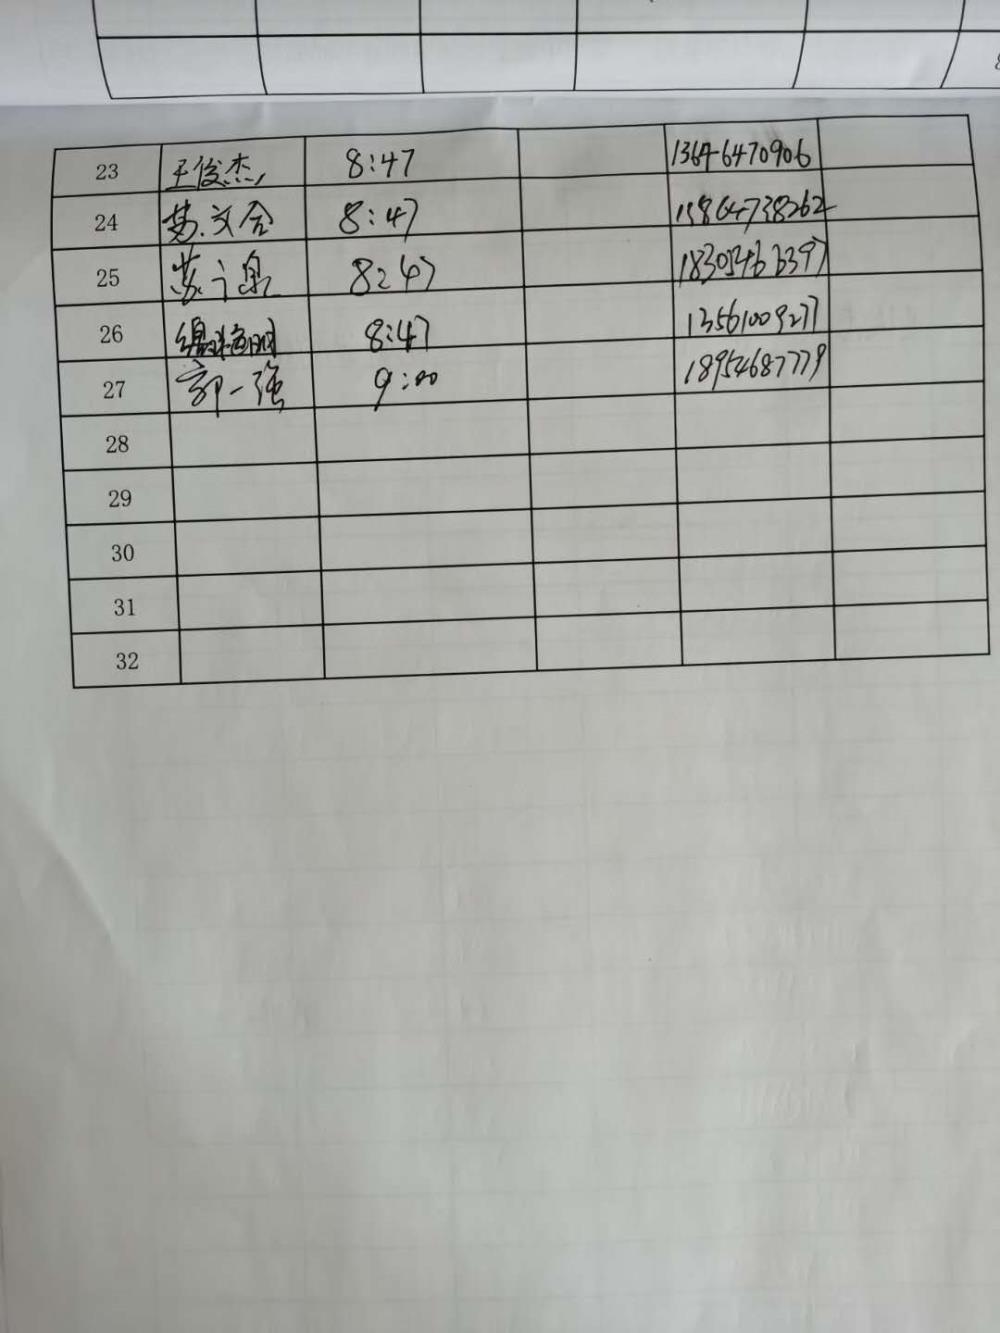 23 王俊杰 8:47 13646470906
24 8:47 13864738262
25 8:47
26 8:47 13561009277
27 郭一强 9:00 18954687779
28
29
30
31
32